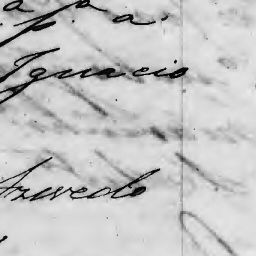 p. a.
Ignacio
Azevedo